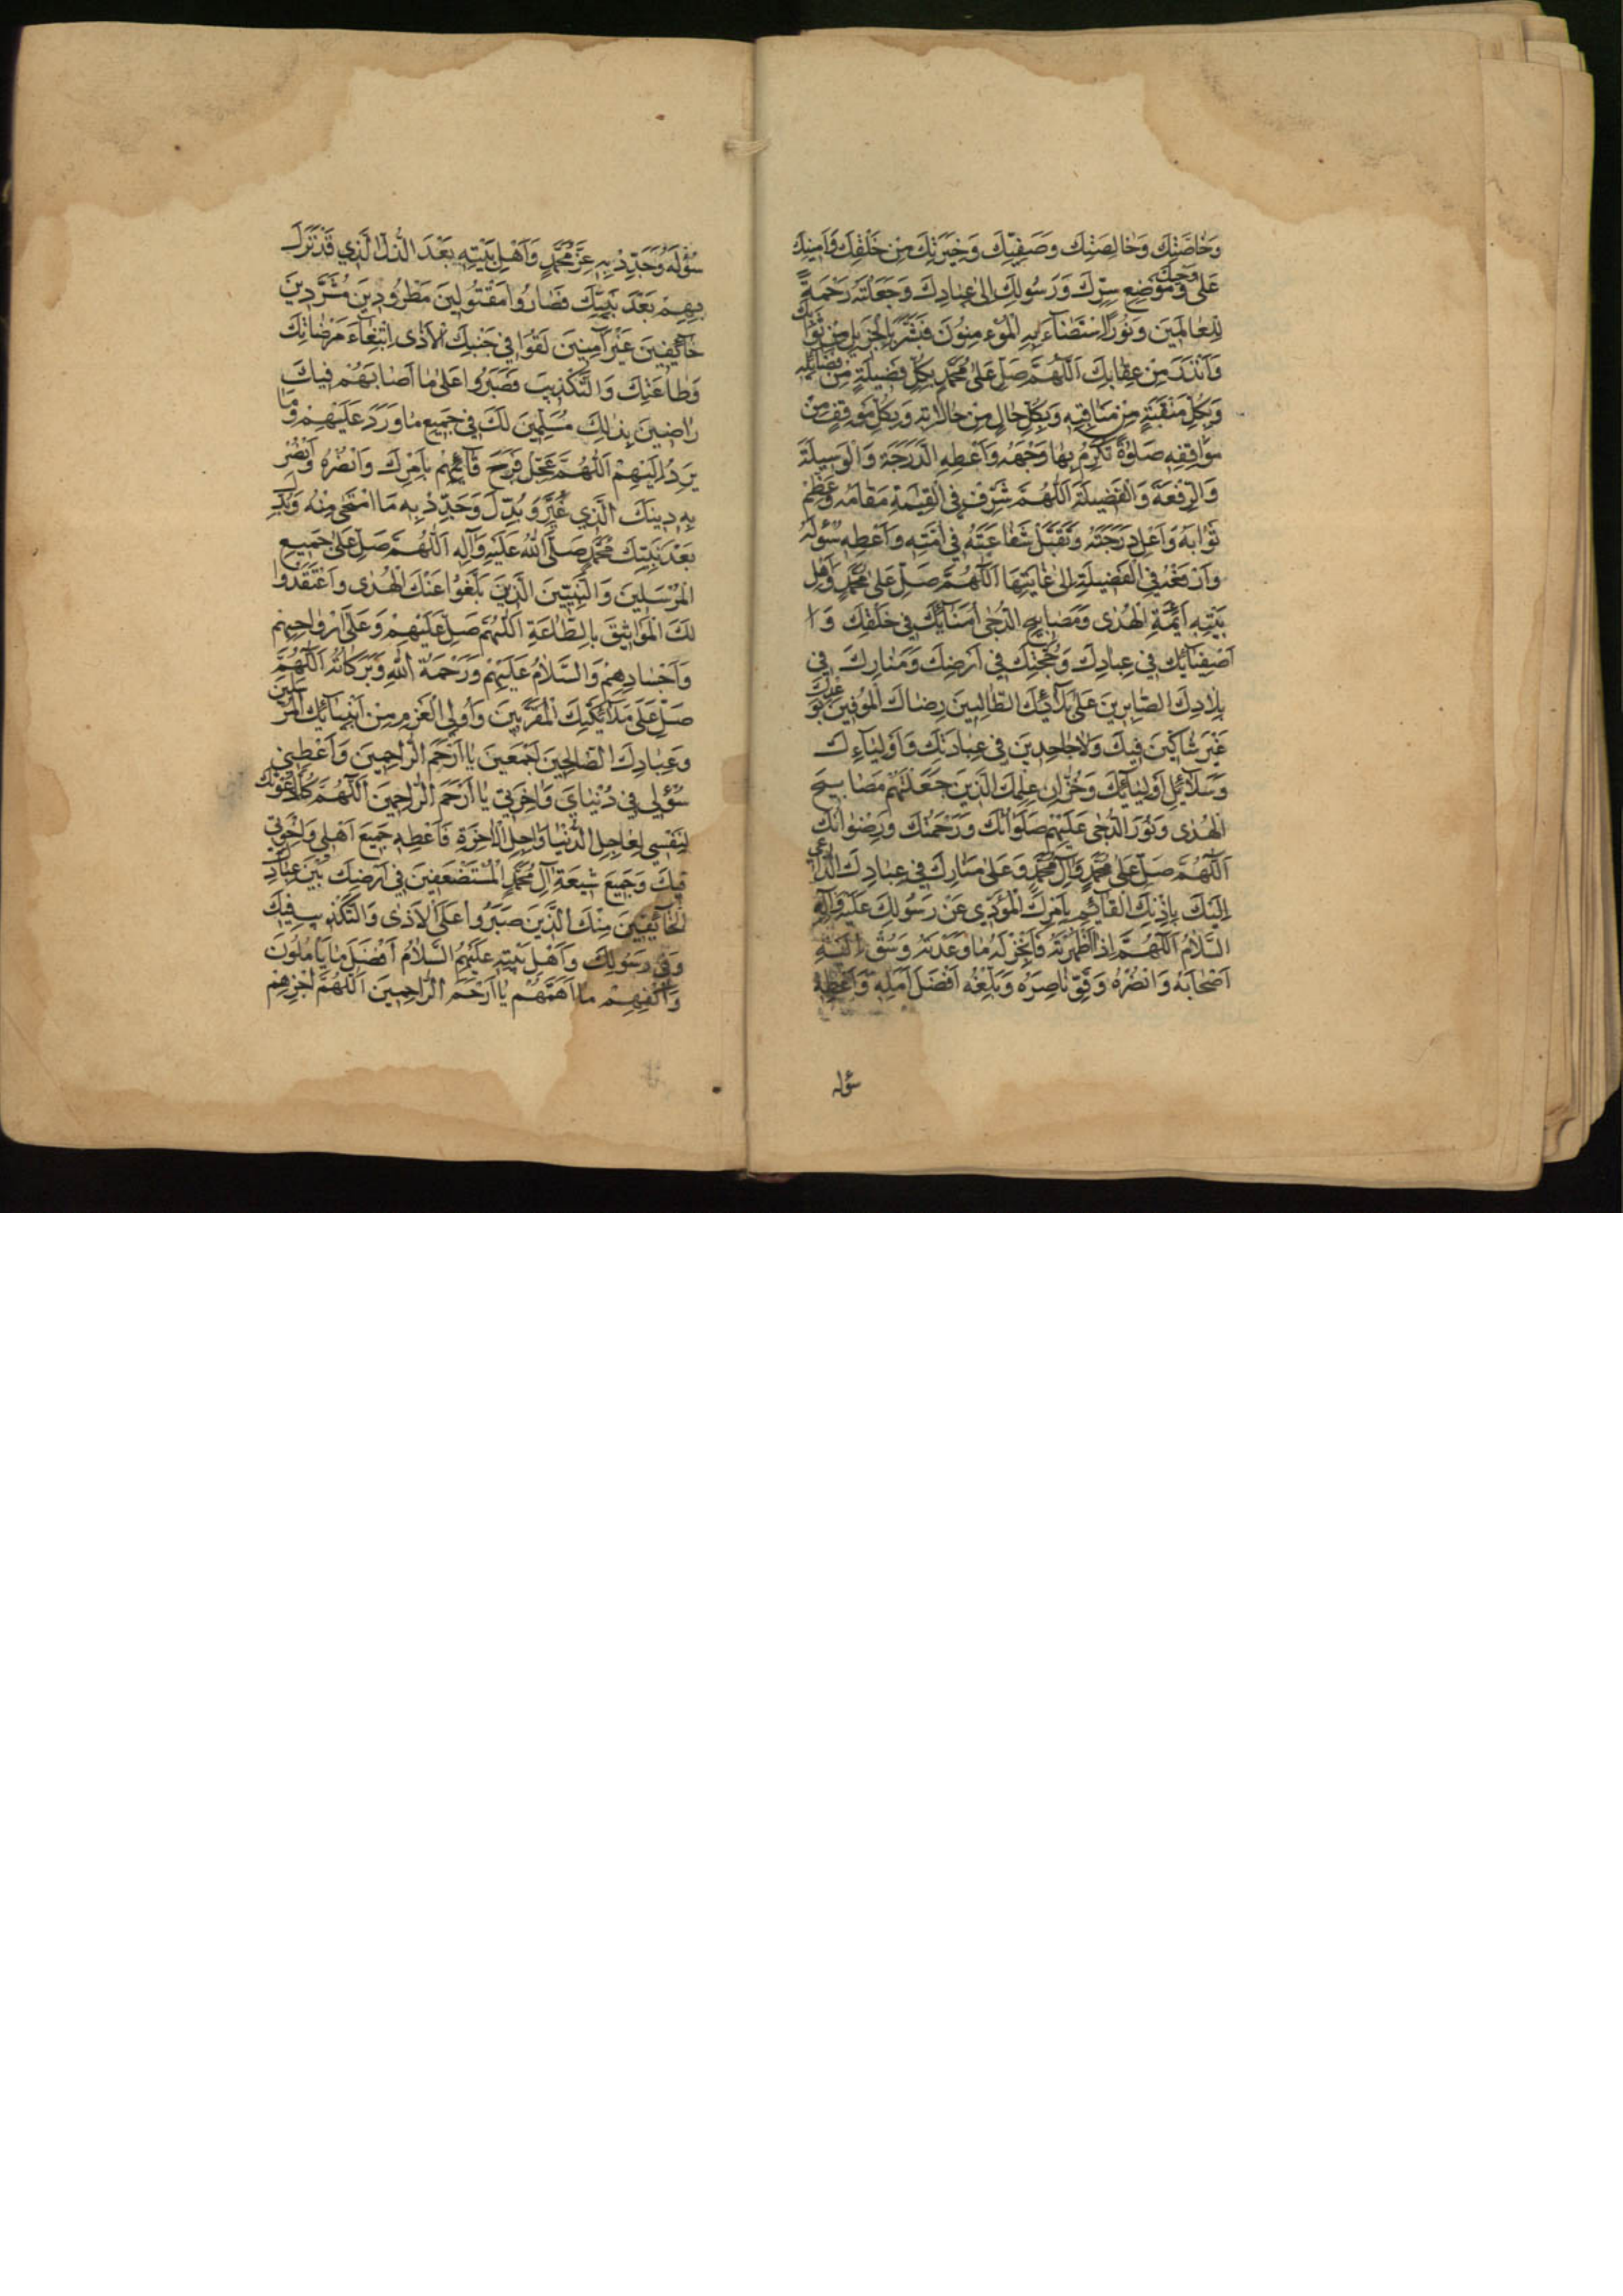 وَخَاصَّتِكَ وَخَالِصَتِكَ وَصَفِيِّكَ وَخِيَرَتِكَ مِنْ خَلْقِكَ وَاَمِينِكَ
عَلٰى وَحْيِكَ وَمَوْضِعِ سِرِّكَ وَرَسُولِكَ اِلٰى عِبَادِكَ وَجَعَلْتَهُ رَحْمَةً
لِلْعَالَمِينَ وَنُورًا اِسْتَضَآءَ بِهِ الْمُؤْمِنُونَ فَبَشَّرَ بِالْجَزِيلِ مِنْ ثَوَابِكَ
وَاَنْذَرَ مِنْ عِقَابِكَ اَللّٰهُمَّ صَلِّ عَلٰى مُحَمَّدٍ بِكُلِّ فَضِيلَةٍ مِنْ فَضَائِلِهِ
وَبِكُلِّ مَنْقَبَةٍ مِنْ مَنَاقِبِهِ وَبِكُلِّ حَالٍ مِنْ حَالَاتِهِ وَبِكُلِّ مَوْقِفٍ مِنْ
مَوَاقِفِهِ صَلٰوةً تُكْرِمُ بِهَا وَجْهَهُ وَاَعْطِهِ الدَّرَجَةَ وَالْوَسِيلَةَ
وَالرِّفْعَةَ وَالْفَضِيلَةَ اَللّٰهُمَّ شَرِّفْ فِي الْقِيٰمَةِ مَقَامَهُ وَعَظِّمْ
ثَوَابَهُ وَاَعْلِ دَرَجَتَهُ وَتَقَبَّلْ شَفَاعَتَهُ فِي اُمَّتِهِ وَاَعْطِهِ سُؤْلَهُ
وَارْفَعْهُ فِي الْفَضِيلَةِ اِلٰى غَايَتِهَا اَللّٰهُمَّ صَلِّ عَلٰى مُحَمَّدٍ وَاَهْلِ
بَيْتِهِ اَئِمَّةِ الْهُدٰى وَمَصَابِيحِ الدُّجٰى اُمَنَآئِكَ فِي خَلْقِكَ وَا
اَصْفِيَآئِكَ فِي عِبَادِكَ وَحُجَجِكَ فِي اَرْضِكَ وَمَنَارِكَ فِي
بِلَادِكَ الصَّابِرِينَ عَلٰى بَلَآئِكَ الطَّالِبِينَ رِضَاكَ الْمُوفِينَ بِوَعْدِكَ
غَيْرَ شَاكِّينَ فِيكَ وَلَا جَاحِدِينَ فِي عِبَادَتِكَ وَاَوْلِيَآءِكَ
وَسَلَآئِلِ اَوْلِيَآئِكَ وَخُزَّانِ عِلْمِكَ الَّذِينَ جَعَلْتَهُمْ مَصَابِيحَ
الْهُدٰى وَنُورَ الدُّجٰى عَلَيْهِمْ صَلَوَاتُكَ وَرَحْمَتُكَ وَرِضْوَانُكَ
اَللّٰهُمَّ صَلِّ عَلٰى مُحَمَّدٍ وَآلِ مُحَمَّدٍ وَعَلٰى مَنَارِكَ فِي عِبَادِكَ الدَّاعِي
اِلَيْكَ بِاِذْنِكَ الْقَآئِمِ بِاَمْرِكَ الْمُؤَدِّي عَنْ رَسُولِكَ عَلَيْهِ وَآلِهِ
السَّلَامُ اَللّٰهُمَّ اِذَا اَظْهَرْتَهُ فَاَنْجِزْ لَهُ مَا وَعَدْتَهُ وَسُقْ اِلَيْهِ
اَصْحَابَهُ وَانْصُرْهُ وَقَوِّ نَاصِرَهُ وَبَلِّغْهُ اَفْضَلَ اَمَلِهِ وَاَعْطِهِ
سؤله
سُؤْلَهُ وَجَدِّدْ بِهِ عِزَّ مُحَمَّدٍ وَاَهْلِ بَيْتِهِ بَعْدَ الذُّلِّ الَّذِي قَدْ نَزَلَ
بِهِمْ بَعْدَ نَبِيِّكَ فَصَارُوا مَقْتُولِينَ مَطْرُودِينَ مُشَرَّدِينَ
خَآئِفِينَ غَيْرَ آمِنِينَ لَقُوا فِي جَنْبِكَ الْاَذٰى اِبْتِغَآءَ مَرْضَاتِكَ
وَطَاعَتِكَ وَالتَّكْذِيبَ فَصَبَرُوا عَلٰى مَا اَصَابَهُمْ فِيكَ
رَاضِينَ بِذٰلِكَ مُسَلِّمِينَ لَكَ فِي جَمِيعِ مَا وَرَدَ عَلَيْهِمْ وَمَا
يَرِدُ اِلَيْهِمْ اَللّٰهُمَّ عَجِّلْ فَرَجَ قَآئِمِهِمْ بِاَمْرِكَ وَانْصُرْهُ وَانْصُرْ
بِهِ دِينَكَ الَّذِي غُيِّرَ وَبُدِّلَ وَجَدِّدْ بِهِ مَا امْتَحٰى مِنْهُ وَبُدِّلَ
بَعْدَ نَبِيِّكَ مُحَمَّدٍ صَلَّى اللّٰهُ عَلَيْهِ وَآلِهِ اَللّٰهُمَّ صَلِّ عَلٰى جَمِيعِ
الْمُرْسَلِينَ وَالنَّبِيِّينَ الَّذِينَ بَلَّغُوا عَنْكَ الْهُدٰى وَاعْتَقَدُوا
لَكَ الْمَوَاثِيقَ بِالطَّاعَةِ اَللّٰهُمَّ صَلِّ عَلَيْهِمْ وَعَلٰى اَرْوَاحِهِمْ
وَاَجْسَادِهِمْ وَالسَّلَامُ عَلَيْهِمْ وَرَحْمَةُ اللّٰهِ وَبَرَكَاتُهُ اَللّٰهُمَّ
صَلِّ عَلٰى مَلَآئِكَتِكَ الْمُقَرَّبِينَ وَاُولِي الْعَزْمِ مِنْ اَنْبِيَآئِكَ الْمُرْسَلِينَ
وَعِبَادِكَ الصَّالِحِينَ اَجْمَعِينَ يَا اَرْحَمَ الرَّاحِمِينَ وَاَعْطِنِي
سُؤْلِي فِي دُنْيَايَ وَآخِرَتِي يَا اَرْحَمَ الرَّاحِمِينَ اَللّٰهُمَّ كُلَّمَا دَعَوْتُكَ
لِنَفْسِي لِعَاجِلِ الدُّنْيَا وَآجِلِ الْآخِرَةِ فَاَعْطِهِ جَمِيعَ اَهْلِي وَاِخْوَانِي
فِيكَ وَجَمِيعَ شِيعَةِ آلِ مُحَمَّدٍ الْمُسْتَضْعَفِينَ فِي اَرْضِكَ بَيْنَ عِبَادِكَ
الْخَآئِفِينَ مِنْكَ الَّذِينَ صَبَرُوا عَلَى الْاَذٰى وَالتَّكْذِيبِ فِيكَ
وَفِي رَسُولِكَ وَاَهْلِ بَيْتِهِ عَلَيْهِمُ السَّلَامُ اَفْضَلَ مَا يَاْمُلُونَ
وَاكْفِهِمْ مَا اَهَمَّهُمْ يَا اَرْحَمَ الرَّاحِمِينَ اَللّٰهُمَّ اجْزِهِمْ